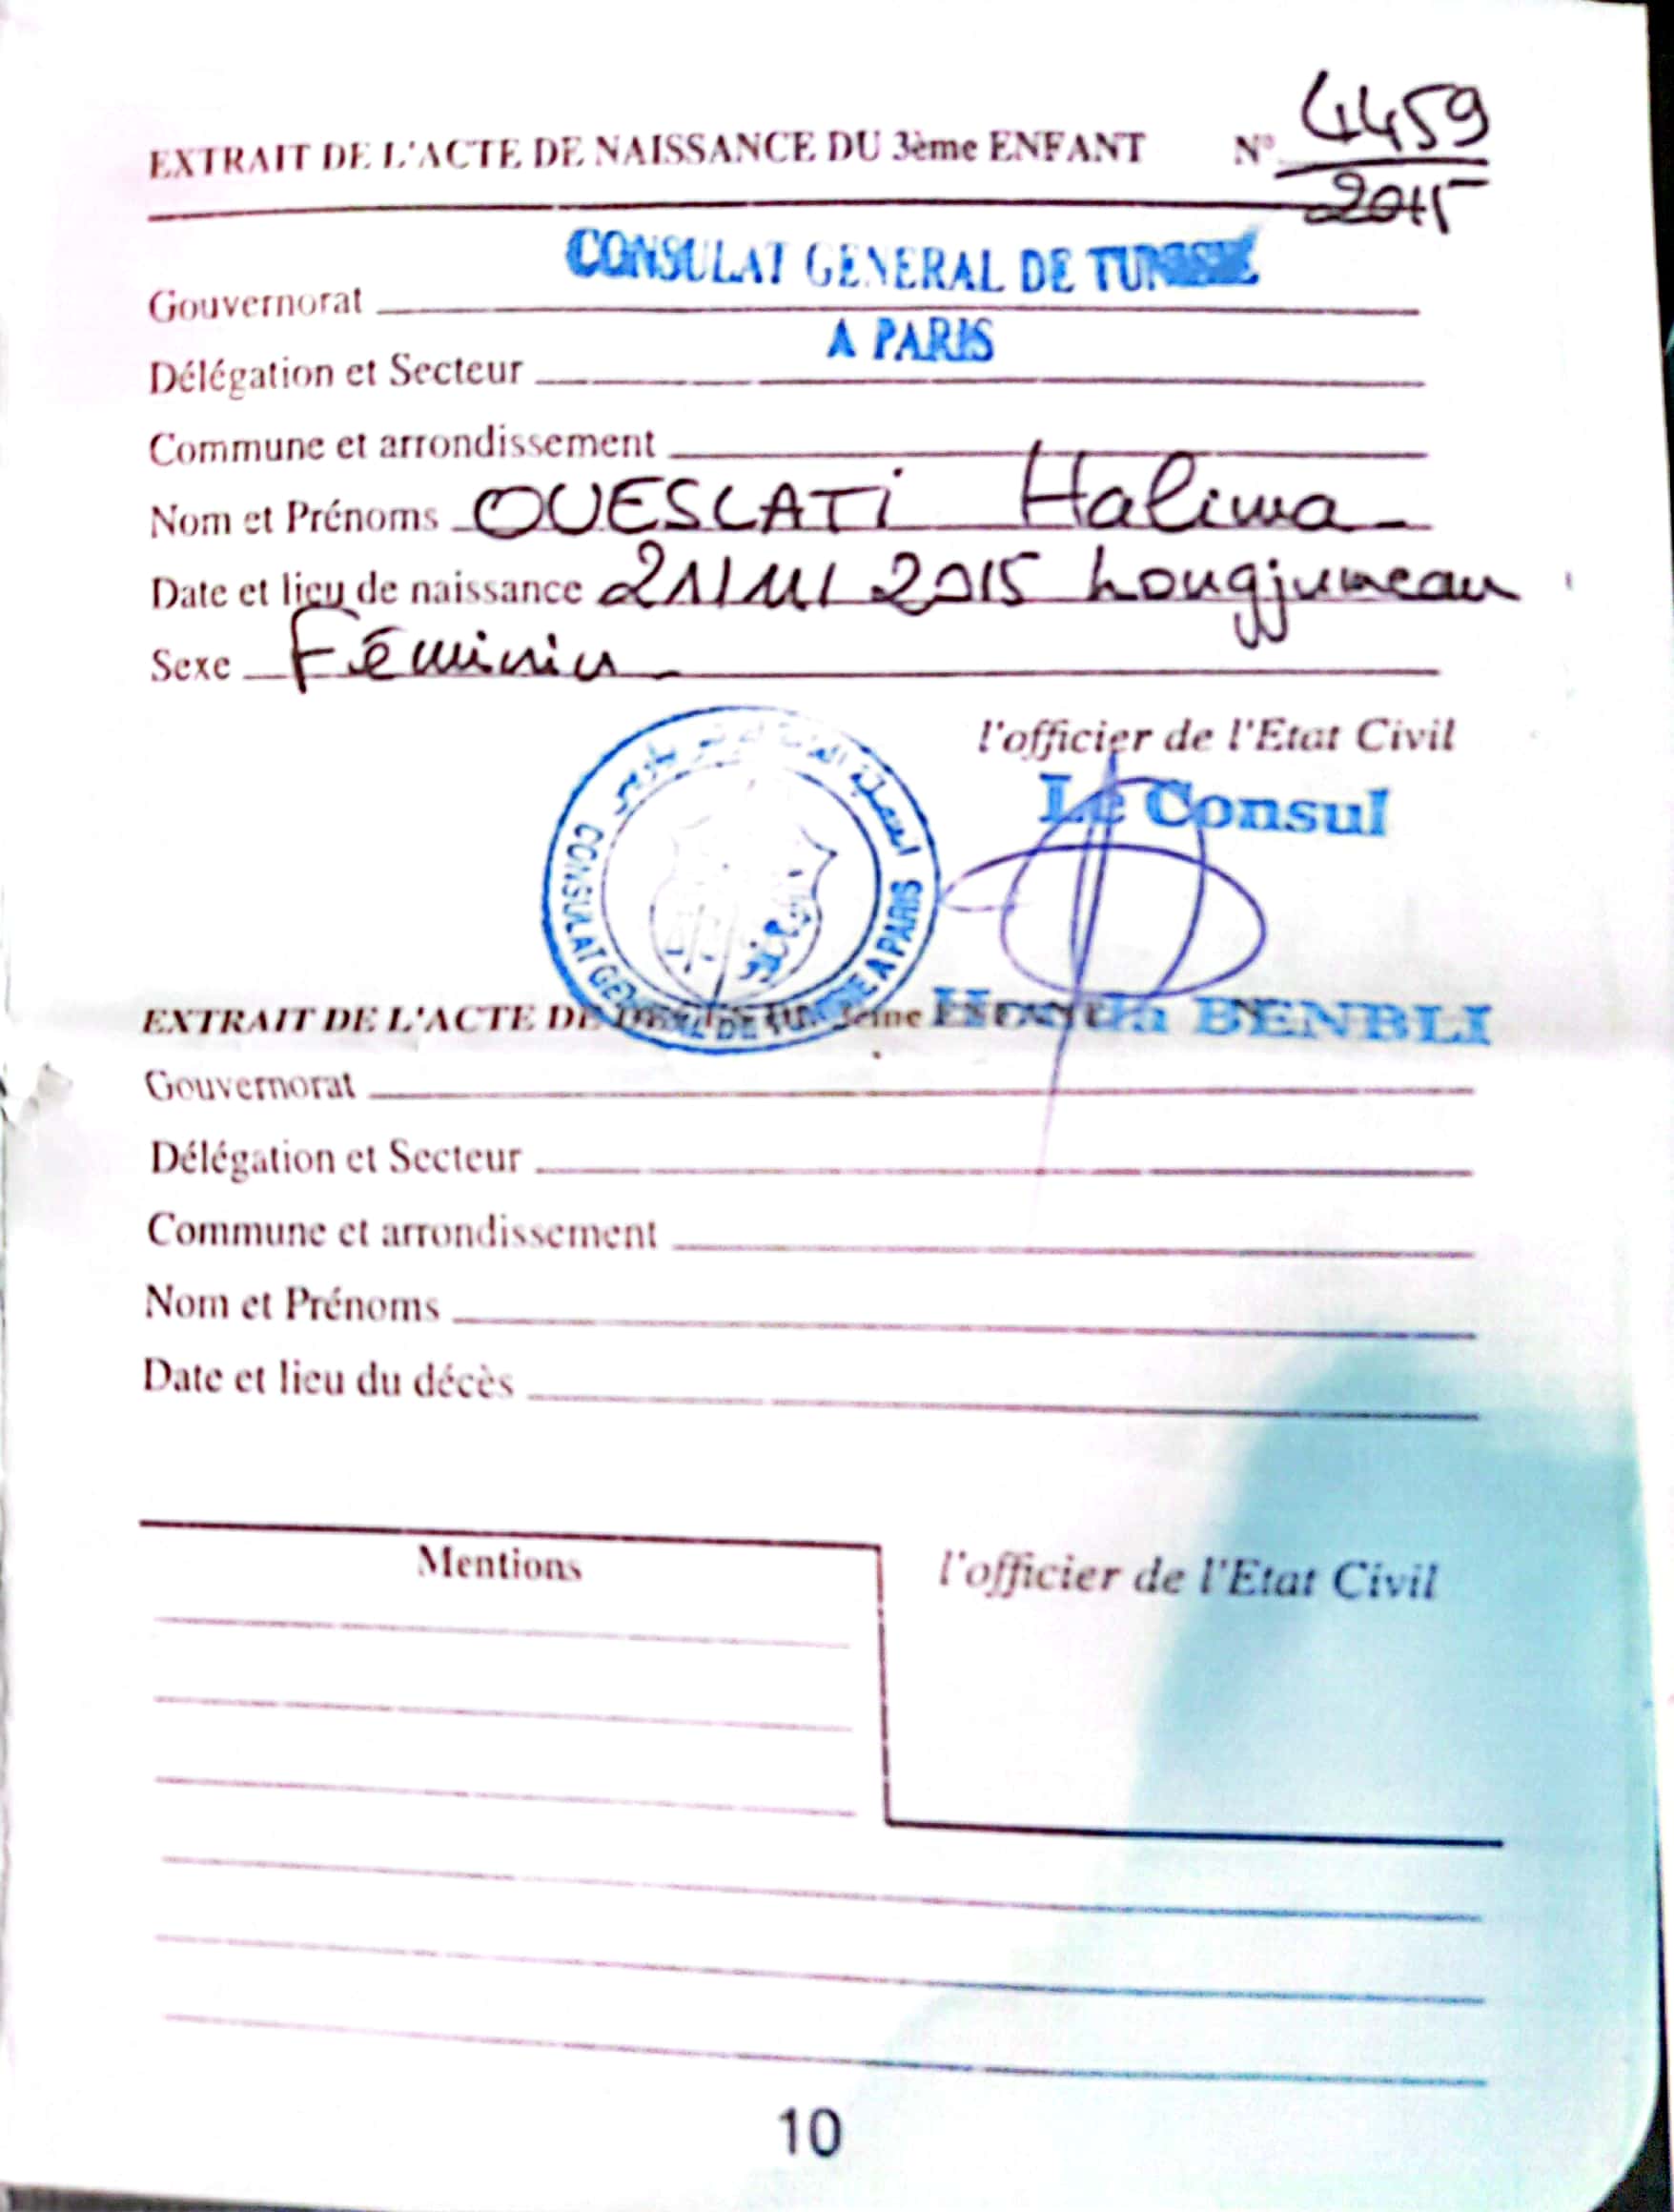 EXTRAIT DE L'ACTE DE NAISSANCE DU 3ème ENFANT N° 4459
2015
CONSULAT GENERAL DE TUNISIE
Gouvernorat
A PARIS
Délégation et Secteur
Commune et arrondissement
Nom et Prénoms OUESLATi Halima
Date et lieu de naissance 21/11/2015 Longjumeau
Sexe Féminin
l'officier de l'Etat Civil
Le Consul
القنصلية العامة بباريس
CONSULAT GENERAL DE TUNISIE A PARIS
BENBLI
EXTRAIT DE L'ACTE DE DECES DU 3ème ENFANT
Gouvernorat
Délégation et Secteur
Commune et arrondissement
Nom et Prénoms
Date et lieu du décès
Mentions
l'officier de l'Etat Civil
10